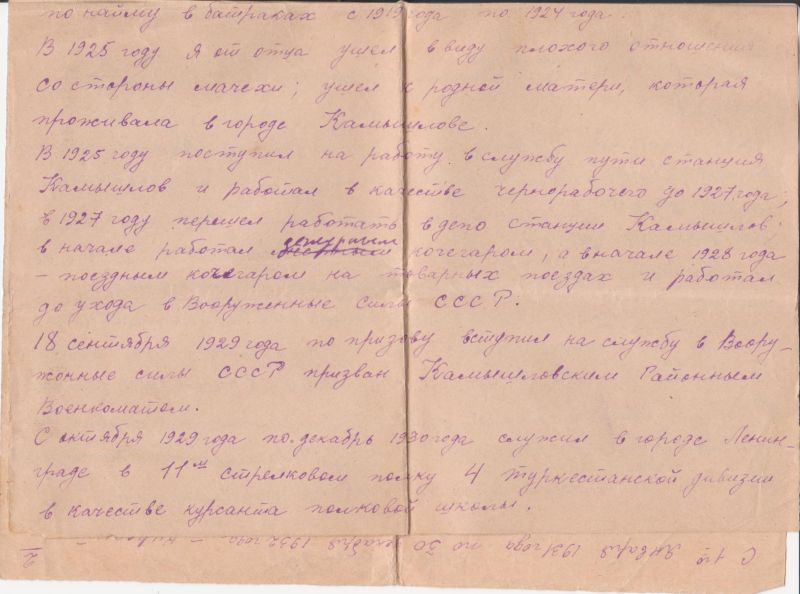 по найму в батраках с 1919 года по 1924 года.
В 1925 году я от отца ушел в виду плохого отношения
со стороны мачехи; ушел к родной матери, которая
проживала в городе Камышлове.
В 1925 году поступил на работу в службу пути станция
Камышлов и работал в качестве чернорабочего до 1927 года;
в 1927 году перешел работать в депо станции Камышлов
в начале работал дежурным кочегаром, а в начале 1928 года
– поездным кочегаром на товарных поездах и работал
до ухода в Вооруженные силы СССР.
18 сентября 1929 года по призову вступил на службу в Воору-
жонные силы СССР призван Камышловским Районным
Военкоматом.
С октября 1929 года по декабрь 1930 года служил в городе Ленин-
граде в 11м стрелковом полку 4 туркестанской дивизии
в качестве курсанта полковой школы.
С 1го января 1931 года по 30 декабря 1932 года –